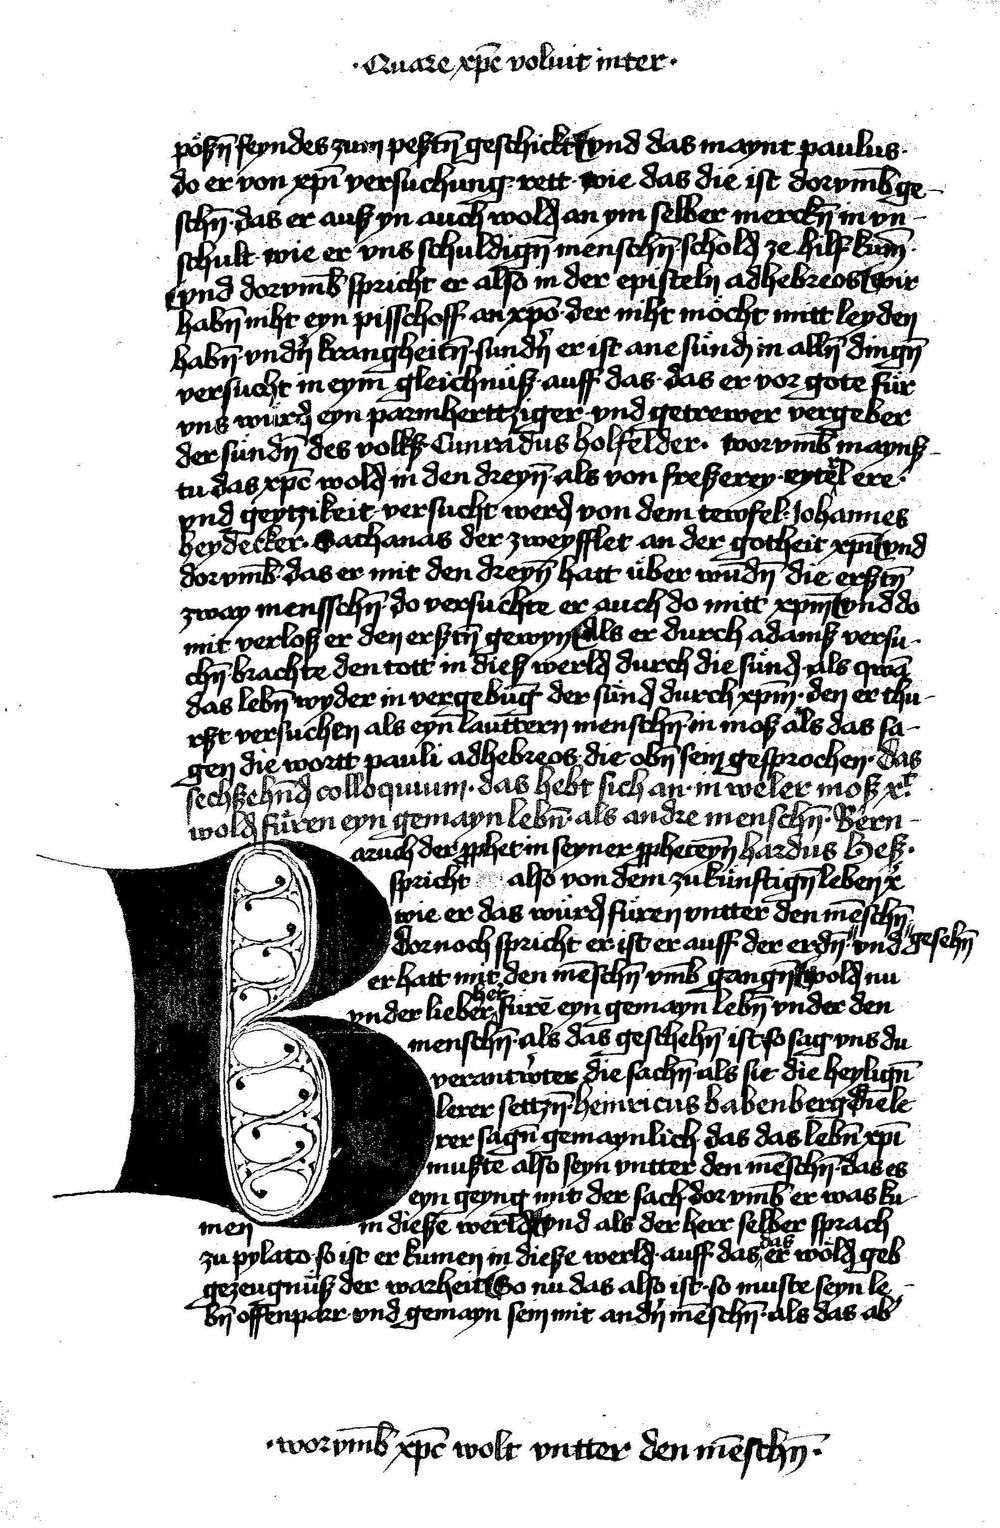 ·Quare xp̄c voluit inter·
pöſzn̄ feyndes zum peſztn̄ geſchickt vnd das maynt paulus·
do er von xp̄i verſuchung· rett· wie das die iſt dorvmb̄ ge-
ſchn̄· das er auſz yn auch wold an ym ſelber merckn̄ in vn-
ſchult wie er vns ſchuldign̄ menſchn̄ ſchold ze hilf kum̄·
vnd dorvmb̄ ſpricht er alſo in der epiſteln adhebreos wir
habn̄ niht eyn piſſchoff· an xp̄o· der niht möcht mitt leyden
habn̄ vndn̄ krangheitn̄· ſundn̄ er iſt ane ſünd in alln̄ dingn̄
verſucht in eym gleichnüſz· auff das· das er vor gote für
vns würd eyn parmherttziger· vnd getrewer vergeber
der ſündn̄ des volkſz· Cunradus holfelder· worvmb̄ maynſz-
tu das xp̄c wold in den dreyn̄· als von freſzerey· eytel ere·
vnd geytzikeit· verſucht werd von dem tewfel· Johannes
heydecker· Sathanas der zweyfflet an der gotheit xp̄i vnd
dorvmb̄· das er mit den dreyn̄ hatt über wūdn̄ die erſztn̄
zway menſſchn̄· do verſuchte er auch do mitt xp̄m vnd do
mit verloſz er den erſztn̄ gewyn als er durch adamſz verſu-
chn̄ brachte den tott in dieſz werld durch die ſünd· als
das lebn̄ wyder in vergebūg der ſünd durch xp̄m· den er thu-
rſzt verſuchen als eyn lauttern menſchn̄· in moſz als das ſa-
gen die wortt pauli adhebreos· die obn̄ ſein geſprochen· das
ſechſzehnd colloquium· das hebt ſich an· in weler moſz
wold füren eyn gemayn lebn̄· als andre menſchn̄· Bern-
Baruch der p̄phet in ſeyner p̄pheceyn̄ hardus Heſz·
ſpricht alſo von dem zukünftign̄ leben
wie er das würd füren vntter den mēſchn̄
dor noch ſpricht er iſt er auff der erdn̄ vnd geſehn̄
er hatt mit den mēſchn̄ vmb̄ gangn̄ wold nu
vnder lieber her fürē eyn gemayn lebn̄ vnder den
menſchn̄· als das geſchehn̄ iſt· ſo ſag vns du
verantwörter die ſachn̄· als ſie die heylign̄
lerer ſettzn̄· heinricus babenberg die le
rer ſagn̄ gemaynlich das das lebn̄ xp̄i
muſzte alſo ſeyn vntter den mēſchn̄· das es
eyn geyng mit der ſach dorvmb̄ er was ku-
men in dieſze werld vnd als der herr ſelber ſprach
zu pylato· ſo iſt er kumen in dieſze werld· auff das das er wöld geb
gezeugnüſz der warheit So nu das alſo iſt· ſo muſte ſeyn le-
bn̄ offenparr· vnd gemayn ſein mit andn̄ mēſchn̄· als das ab
·worvmb̄ xp̄c wolt vntter den mēſchn̄·